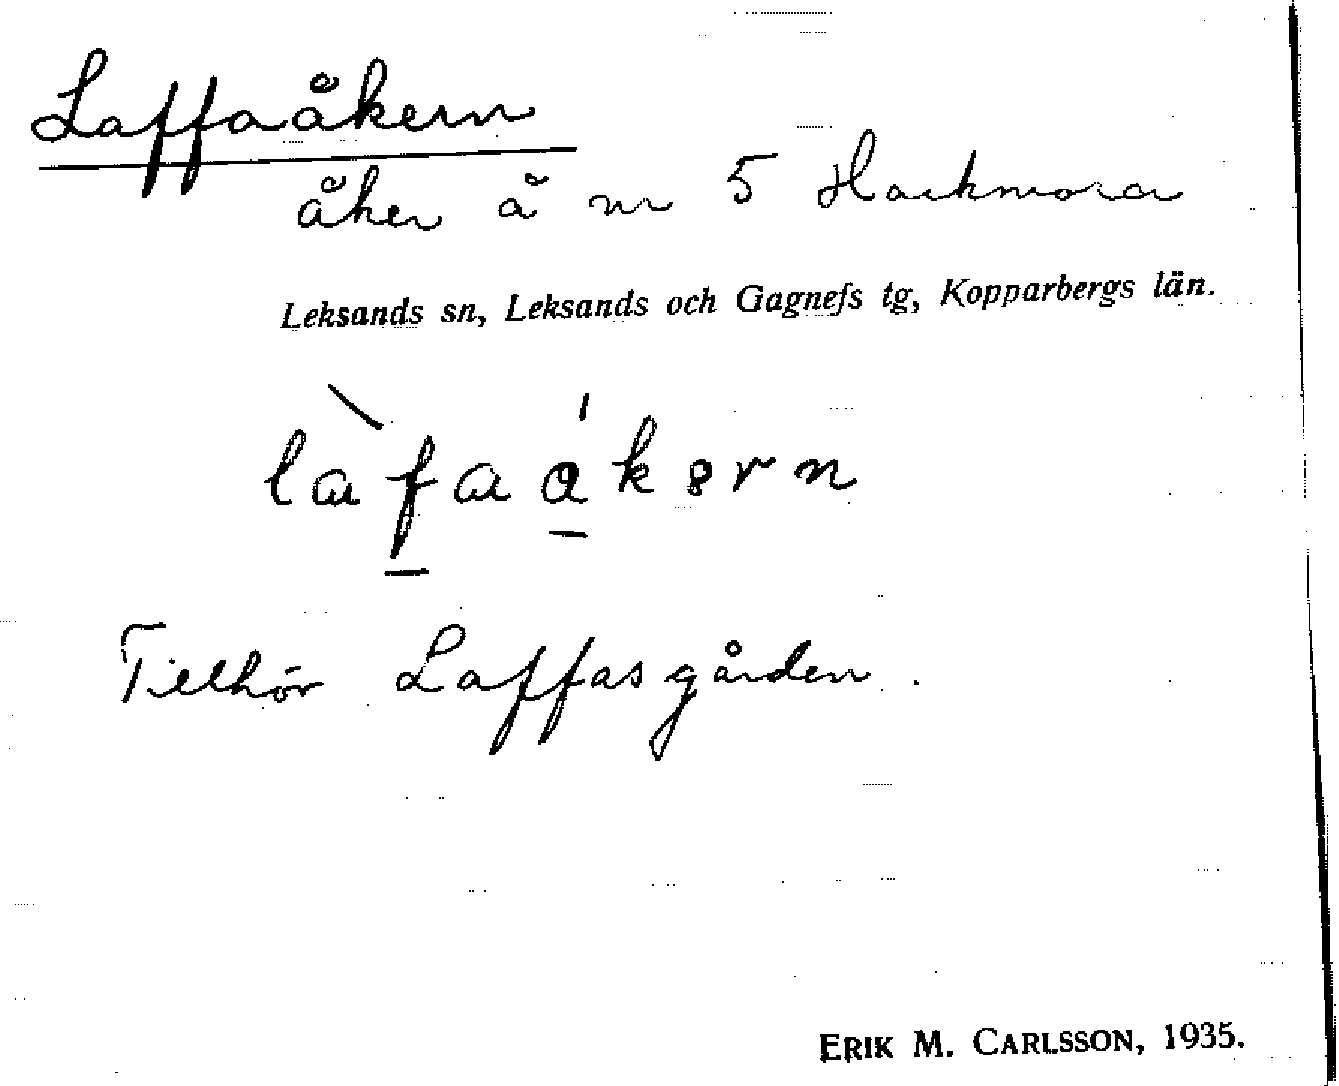 Laffaåkern
åker å nr 5 Hackmora
Leksands sn, Leksands och Gagnefs tg, Kopparbergs län.
Tillhör Laffasgården.
ERIK M. CARLSSON, 1935.